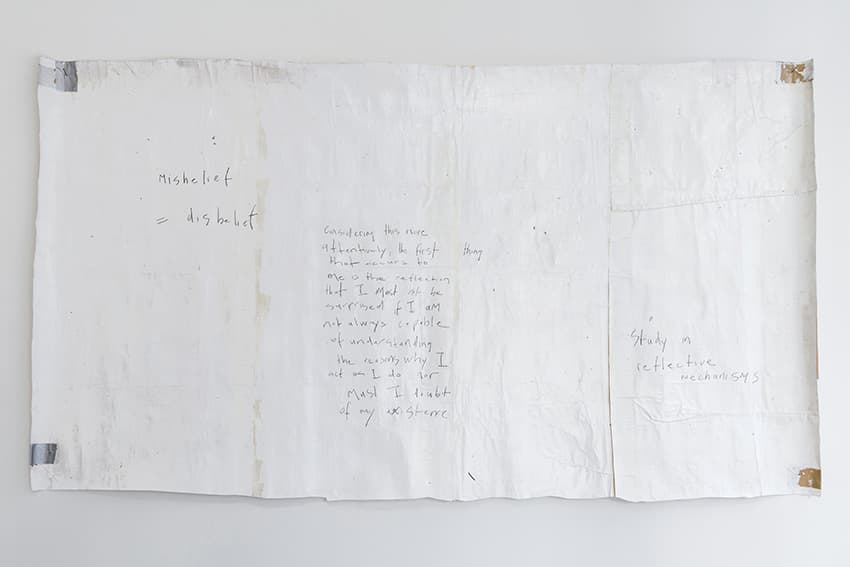 Misbelief
= disbelief
Considering this more
attentively, the first thing
that occurs to
me is the reflection
that I must not be
surprised if I am
not always capable
of understanding
the reasons why I
act as I do nor
must I doubt
of my existence
Study in
reflective
mechanisms